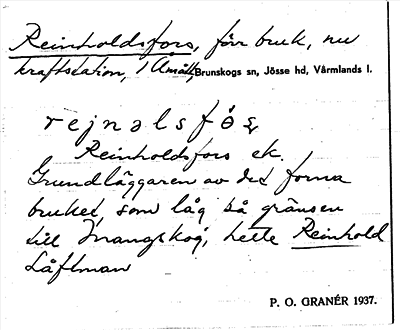 Reinholdsfors, förr bruk, nu
kraftstation, i Åmått, Brunskogs sn, Jösse hd, Värmlands l.
rejnəlsfös
Reinholdsfors ek.
Grundläggaren av det forna
bruket, som låg på gränsen
till Mangskog, hette Reinhold
Låftman
P. O. GRANÉR 1937.